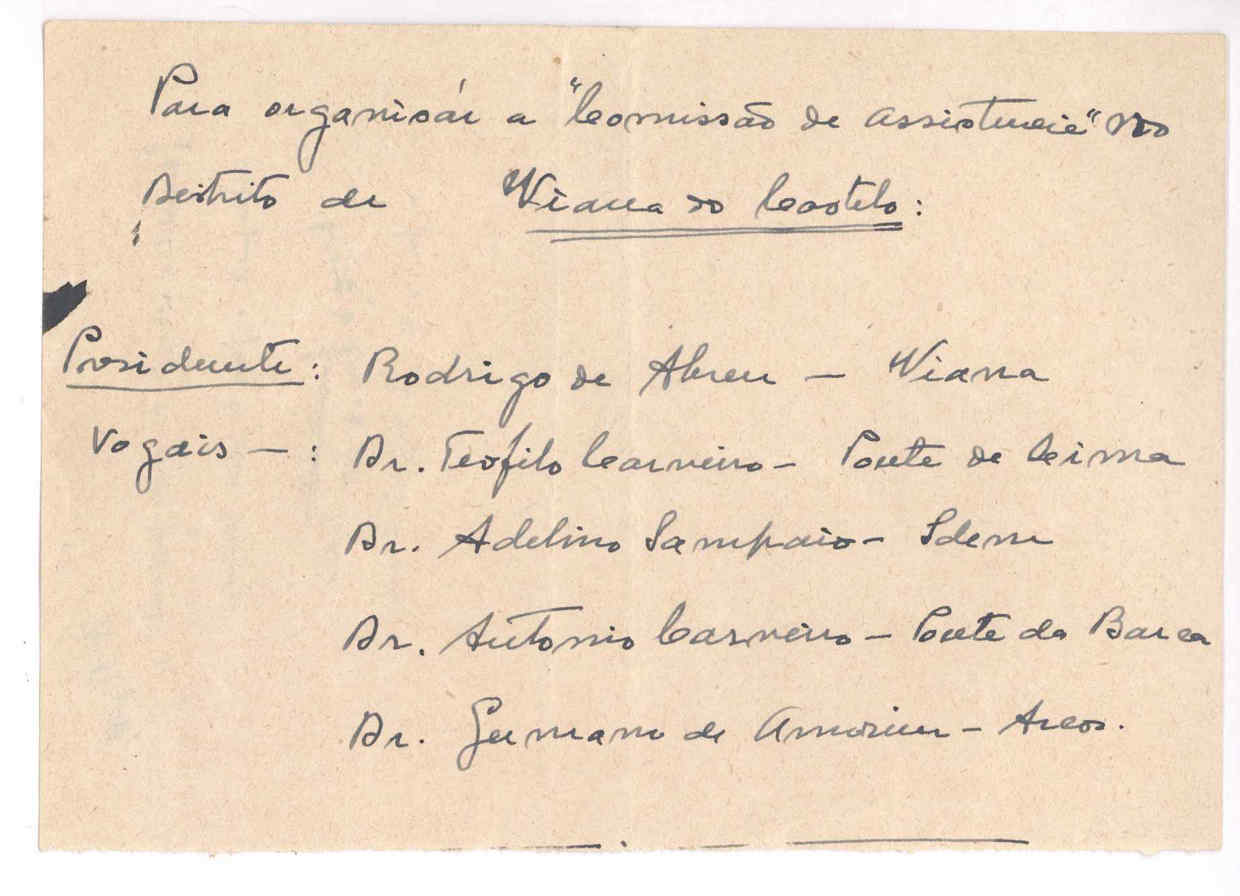 Para organisár a "Comissão de Assistencia" no
Distrito de Viana do Castelo:
Presidente: Rodrigo de Abreu — Viana
Vogais —: Dr. Teofilo Carneiro — Ponte de Lima
Dr. Adelino Sampaio — Idem
Dr. Antonio Carneiro — Ponte da Barca
Dr. Germano de Amorim — Arcos.